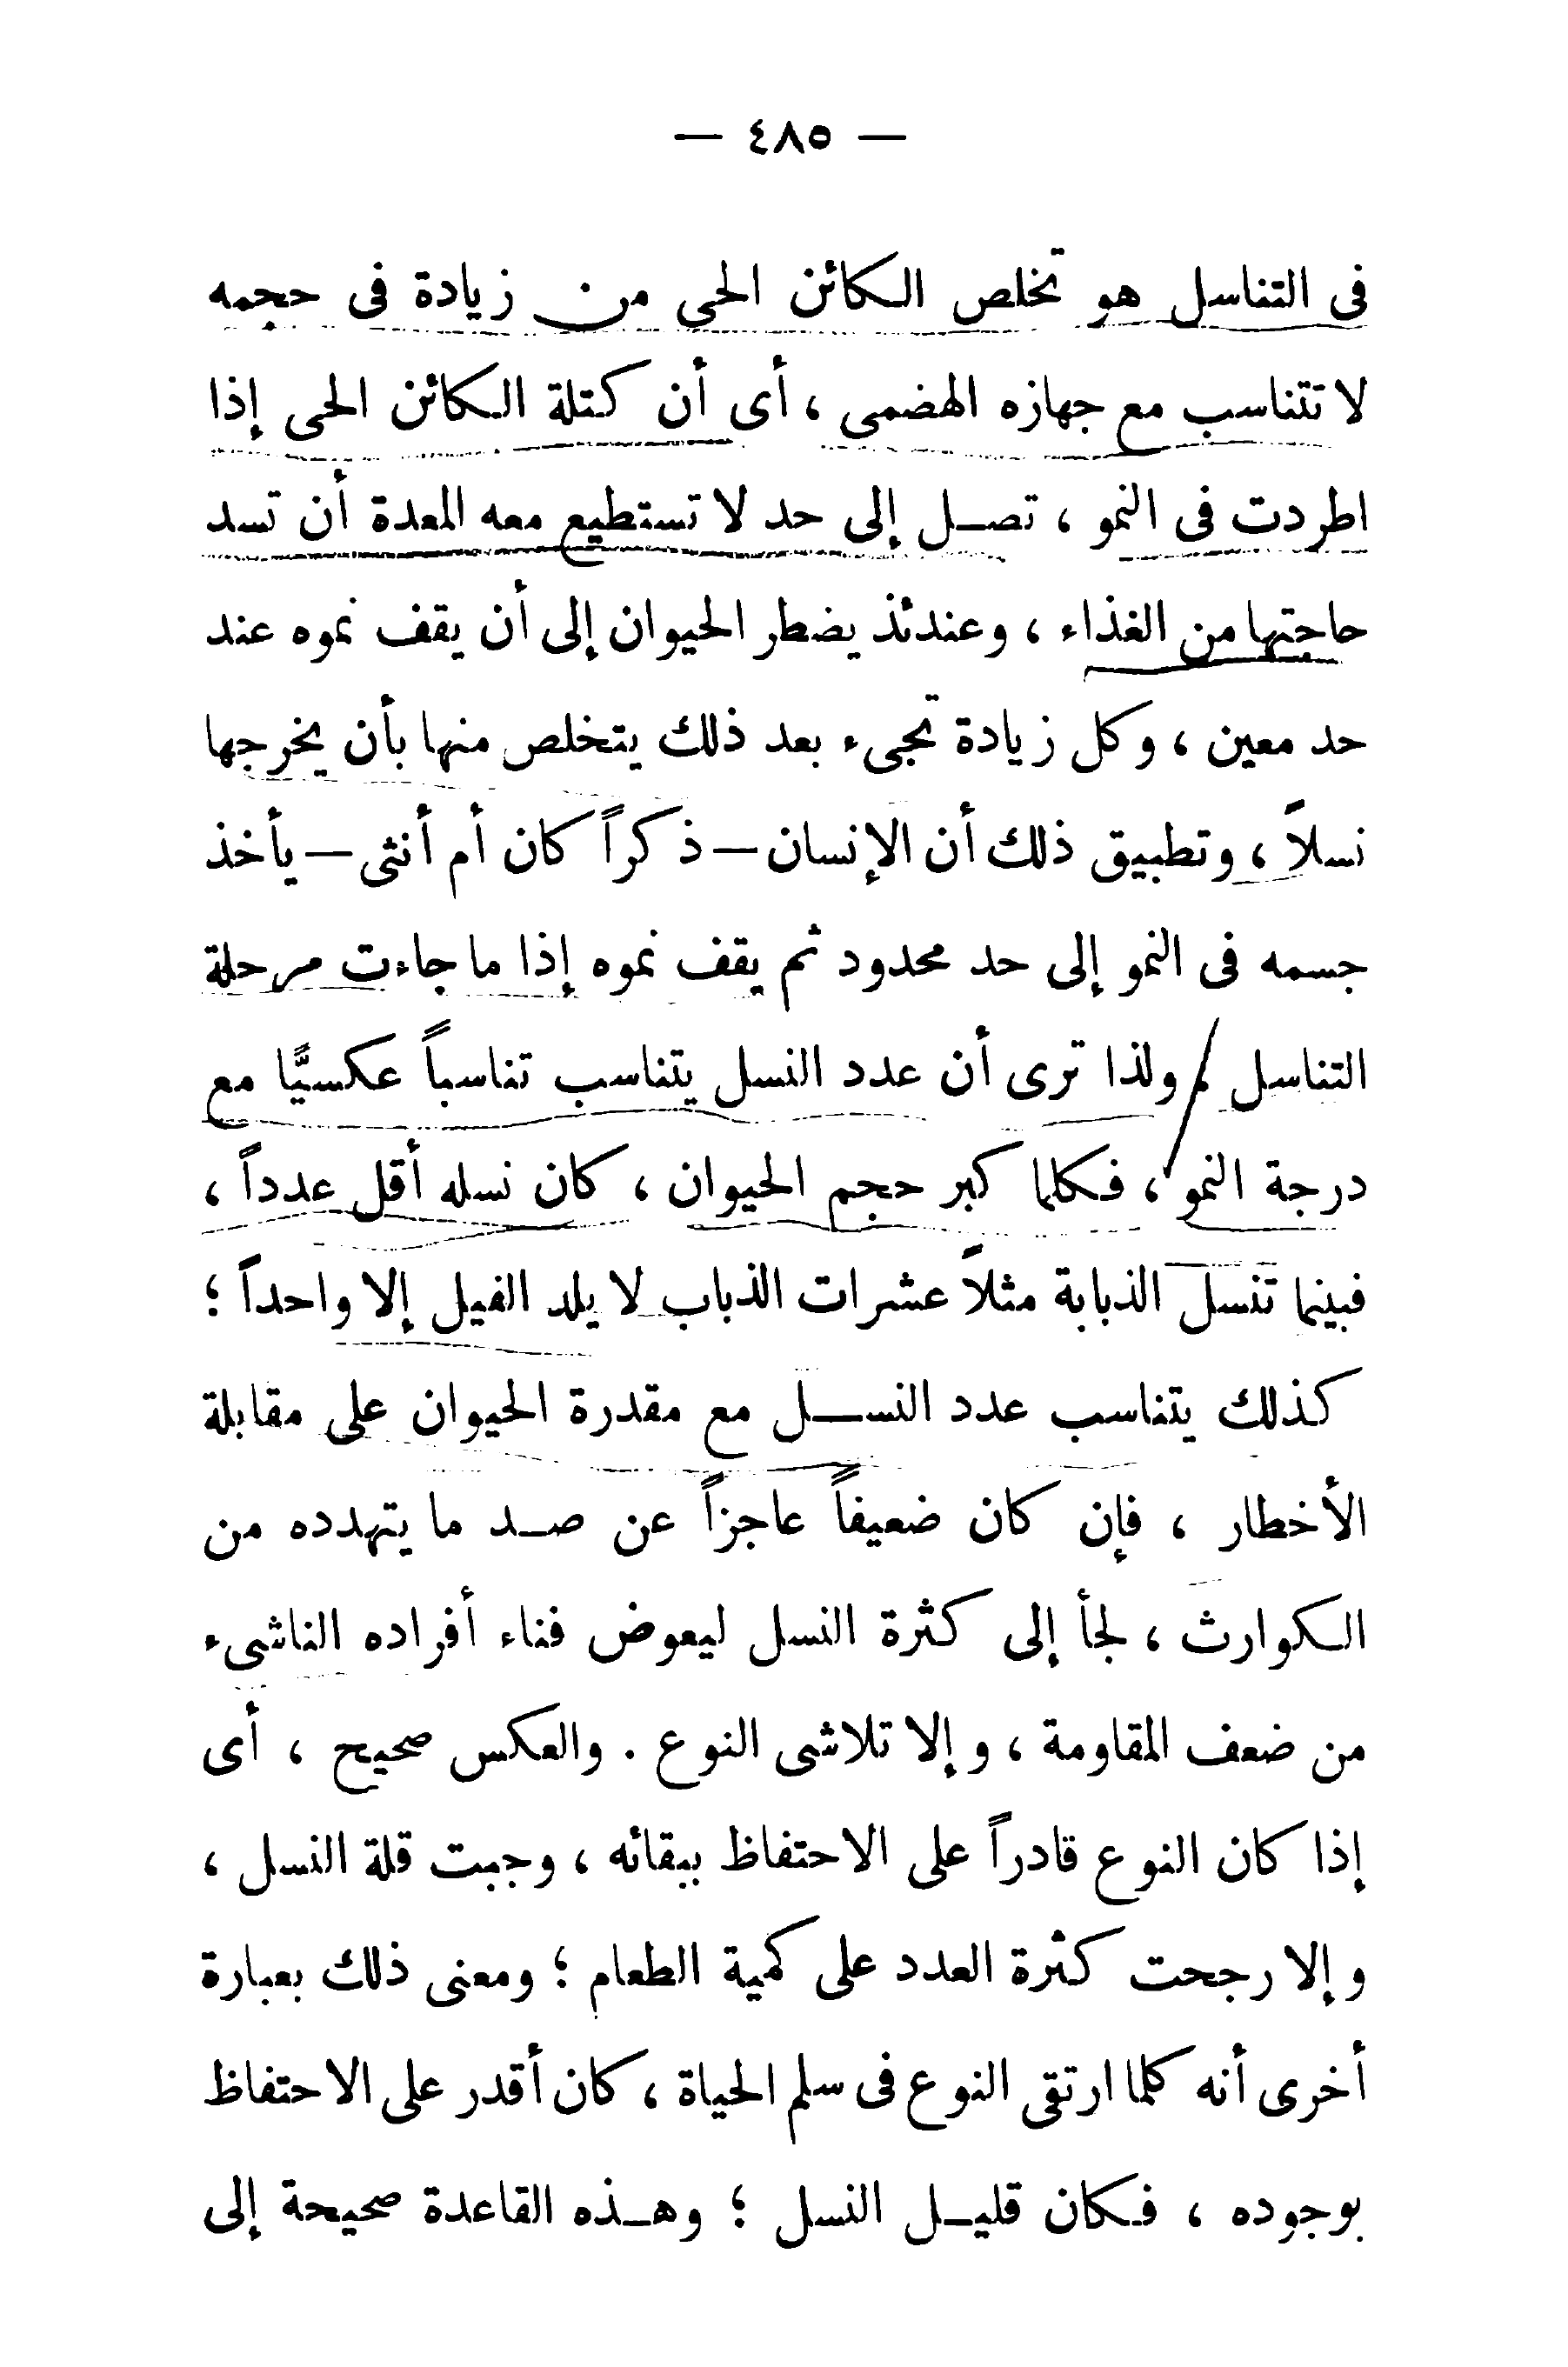 — ٤٨٥ —
فى التناسل هو تخلص الكائن الحى من زيادة فى حجمه
لا تتناسب مع جهازه الهضمى ، أى أن كتلة الكائن الحى إذا
اطردت فى النمو ، تصل إلى حد لا تستطيع معه المعدة أن تسد
حاجتها من الغذاء ، وعندئذ يضطر الحيوان إلى أن يقف نموه عند
حد معين ، وكل زيادة تجىء بعد ذلك يتخلص منها بأن يخرجها
نسلاً ، وتطبيق ذلك أن الإنسان — ذكراً كان أم أنثى — يأخذ
جسمه فى النمو إلى حد محدود ثم يقف نموه إذا ما جاءت مرحلة
التناسل ، ولذا ترى أن عدد النسل يتناسب تناسباً عكسيًّا مع
درجة النمو ، فكلما كبر حجم الحيوان ، كان نسله أقل عدداً ،
فبينما تنسل الذبابة مثلاً عشرات الذباب لا يلد الفيل إلا واحداً ؛
كذلك يتناسب عدد النسل مع مقدرة الحيوان على مقابلة
الأخطار ، فإن كان ضعيفاً عاجزاً عن صد ما يتهدده من
الكوارث ، لجأ إلى كثرة النسل ليعوض فناء أفراده الناشىء
من ضعف المقاومة ، وإلا تلاشى النوع . والعكس صحيح ، أى
إذا كان النوع قادراً على الاحتفاظ ببقائه ، وجبت قلة النسل ،
وإلا رجحت كثرة العدد على كمية الطعام ؛ ومعنى ذلك بعبارة
أخرى أنه كلما ارتقى النوع فى سلم الحياة ، كان أقدر على الاحتفاظ
بوجوده ، فكان قليل النسل ؛ وهذه القاعدة صحيحة إلى